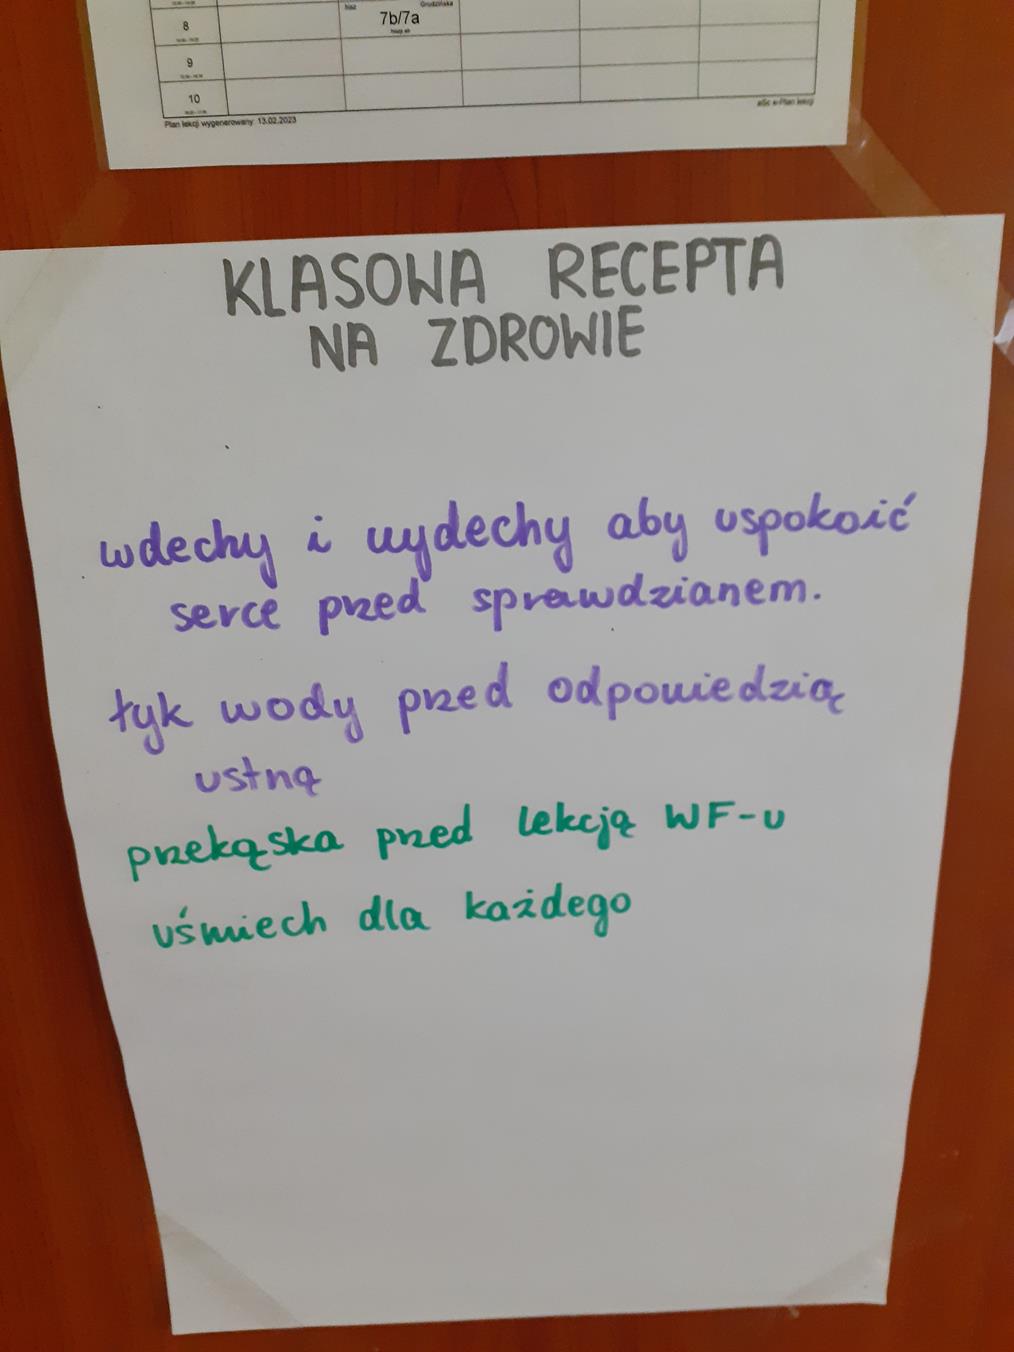 8
hisz
Grudzińska
7b/7a
hiszp ab
9
10
Plan lekcji wygenerowany: 13.02.2023
aSc e-Plan lekcji
KLASOWA RECEPTA
NA ZDROWIE
wdechy i wydechy aby uspokoić
serce przed sprawdzianem.
łyk wody przed odpowiedzią
ustną
przekąska przed lekcją WF-u
uśmiech dla każdego